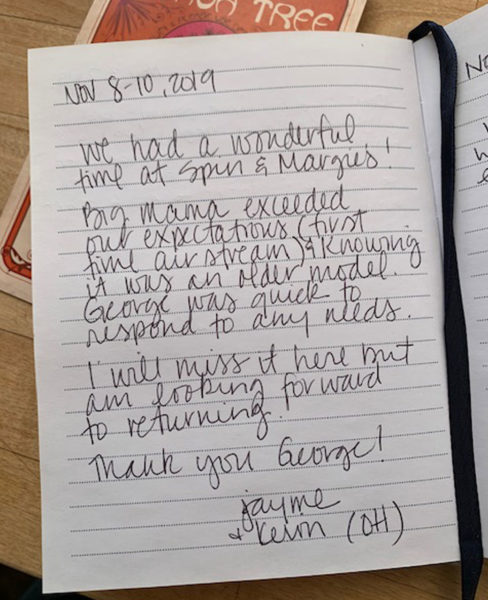 TREE
NOV 8-10, 2019
We had a wonderful
time at Spin & Margies!
Big Mama exceeded
our expectations (first
time airstream) & knowing
it was an older model.
George was quick to
respond to any needs.
I will miss it here but
am looking forward
to returning.
Thank you George!
Jayme
+ Kevin (OH)
NO